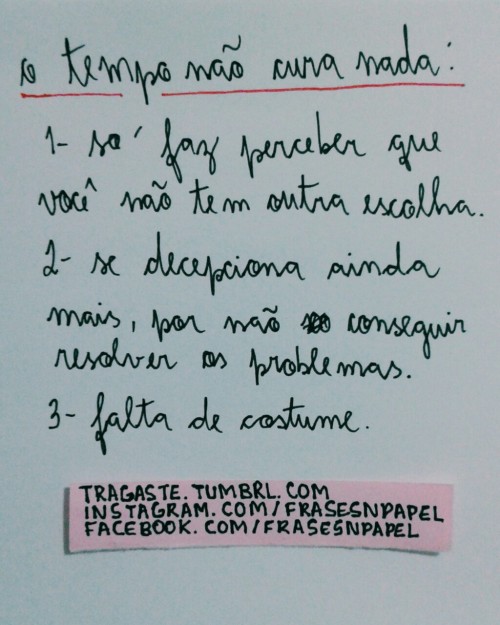 o tempo não cura nada:
1- só faz perceber que
você não tem outra escolha.
2- se decepciona ainda
mais, por não conseguir
resolver os problemas.
3- falta de costume.
TRAGASTE.TUMBRL.COM
INSTAGRAM.COM/FRASESNPAPEL
FACEBOOK.COM/FRASESNPAPEL